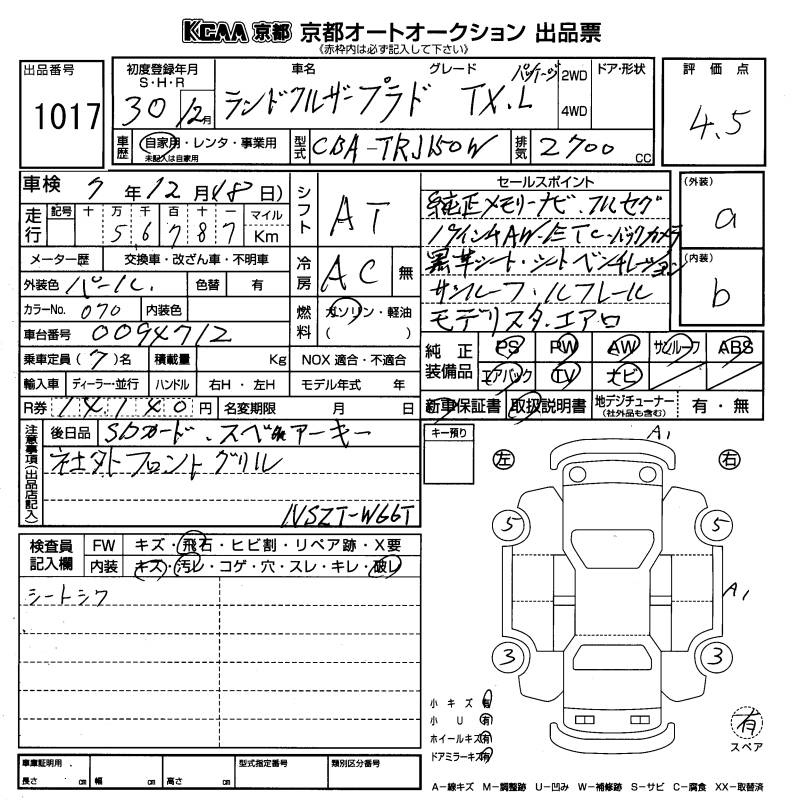 KCAA 京都 京都オートオークション 出品票
《赤枠内は必ず記入して下さい》
出品番号
1017
初度登録年月
S・H・R
30 12月
車名
グレード
ランドクルーザープラド TX.L パッケージ
2WD
4WD
ドア・形状
評価点
4.5
車歴
自家用・レンタ・事業用
未記入は自家用
型式
CBA-TRJ150W
排気
2700 CC
車検 7年12月18日)
走行
記号 十 万 千 百 十 一 マイル
5 6 7 8 7 Km
シフト
AT
メーター歴 交換車・改ざん車・不明車
冷房
AC 無
外装色 パール. 色替 有
カラーNo. 070 内装色
燃料
ガソリン・軽油
( )
車台番号 0094712
乗車定員 (7)名 積載量 Kg NOX 適合・不適合
輸入車 ディーラー・並行 ハンドル 右H・左H モデル年式 年
R券 14140円 名変期限 月 日
セールスポイント
純正メモリーナビ.フルセグ
19インチAW.ETC.バックカメラ
黒革シート・シートベンチレーション
サンルーフ.ルーフレール
モデリスタ.エアロ
(外装)
a
(内装)
b
純正装備品
PS PW AW サンルーフ ABS
エアバック TV ナビ
新車保証書 取扱説明書 地デジチューナー
(社外品も含む) 有・無
注意事項(出品店記入)
後日品 SDカード.スペアキー
社外フロントグリル
NSZT-W66T
キー預り
左 右
A1
5 5
A1
3 3
検査員記入欄
FW キズ・飛石・ヒビ割・リペア跡・X要
内装 キズ・汚レ・コゲ・穴・スレ・キレ・破レ
シートシワ
小キズ 有
小 U 有
ホイールキズ 有
ドアミラーキズ 有
有
スペア
車庫証明用.
長さ cm 幅 cm 高さ cm
型式指定番号
類別区分番号
A−線キズ M−調整跡 U−凹み W−補修跡 S−サビ C−腐食 XX−取替済